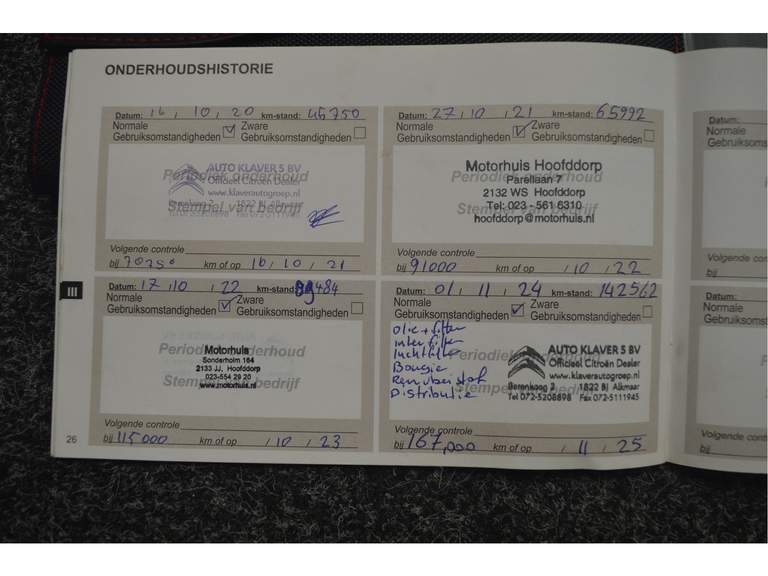 ONDERHOUDSHISTORIE
Datum: 16 / 10 / 20 km-stand: 45750
Normale Gebruiksomstandigheden Zware
Periodiek onderhoud
AUTO KLAVER 5 BV
Officieel Citroën Dealer
www.klaverautogroep.nl
Stempel van bedrijf
Volgende controle
bij km of op 16 / 10 / 21
Datum: 27 / 10 / 21 km-stand: 65992
Normale Gebruiksomstandigheden Zware
Periodiek onderhoud
Motorhuis Hoofddorp
Parellaan 7
2132 WS Hoofddorp
Tel: 023 - 561 6310
hoofddorp@motorhuis.nl
Stempel van bedrijf
Volgende controle
bij 91000 km of op / 10 / 22
III
Datum: 17 / 10 / 22 km-stand:
Normale Gebruiksomstandigheden Zware
Periodiek onderhoud
Motorhuis
Sonderholm 164
2133 JJ, Hoofddorp
023-554 29 20
www.motorhuis.nl
Stempel van bedrijf
Volgende controle
bij 115000 km of op / 10 / 23
26
Datum: 01 / 11 / 24 km-stand: 142562
Normale Gebruiksomstandigheden Zware
Olie + filter
interfilter
luchtfilter
Bougie
Remvloeistof
Distributie
Periodiek onderhoud
AUTO KLAVER 5 BV
Officieel Citroën Dealer
www.klaverautogroep.nl
Berenkoog 2 1822 BJ Alkmaar
Tel 072-5208898 Fax 072-5111945
Stempel van bedrijf
Volgende controle
bij 167,000 km of op / 11 / 25
Datum:
Normale
Gebruiksom
Volgende con
bij
Datum:
Normale
Gebruiksom
Volgende con
bij